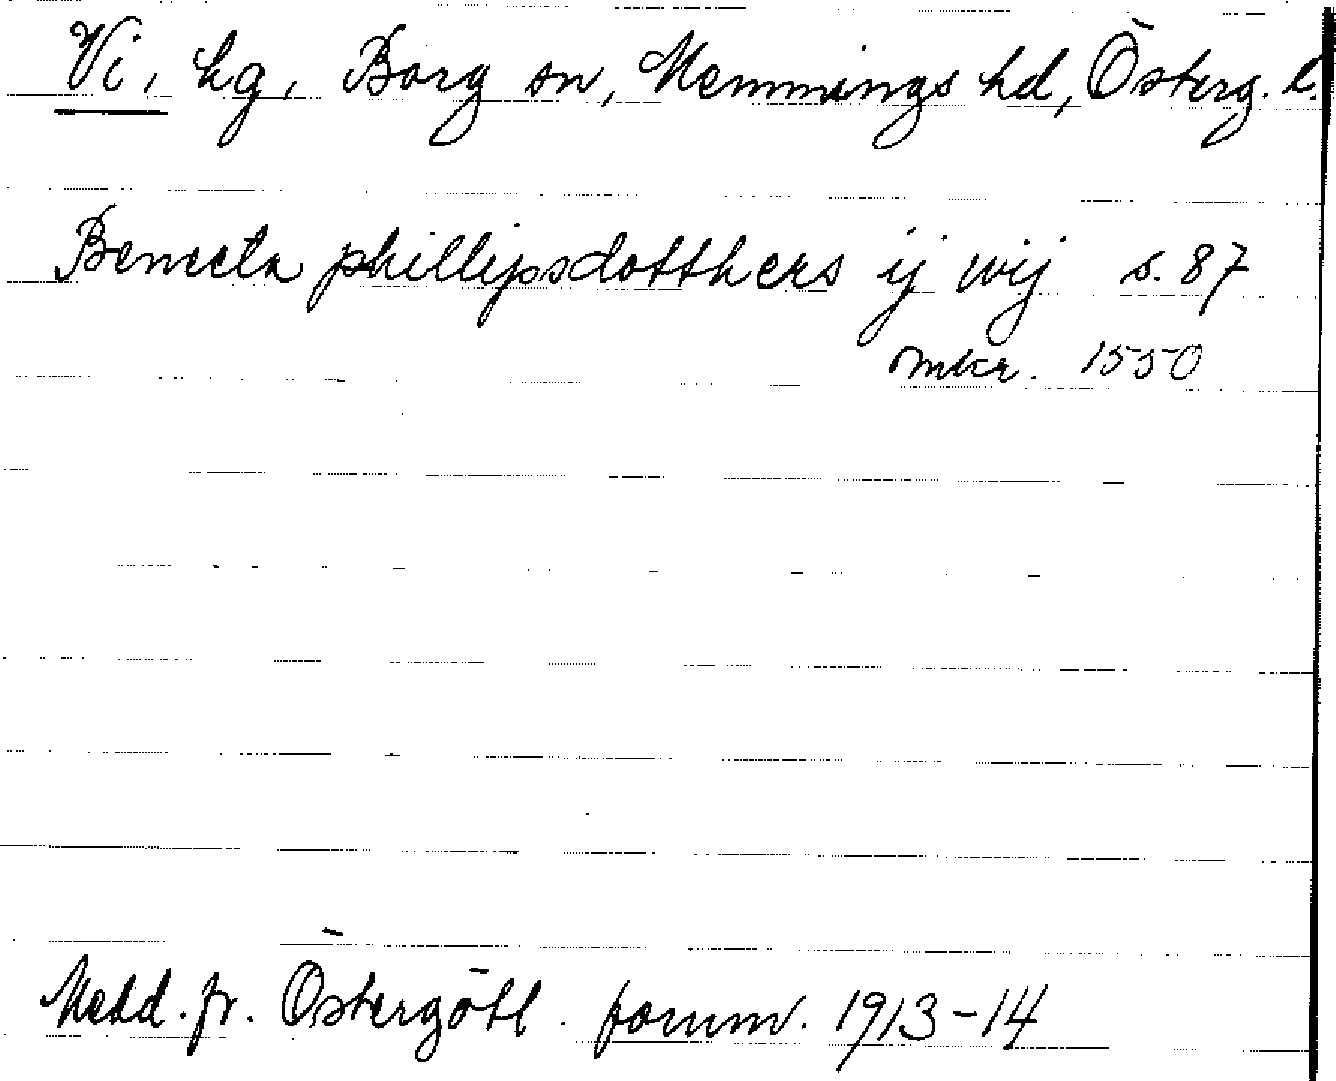 Vi, hg, Borg sn, Memmings hd, Österg. l.
Benecta phillipsdotthers ij wij s. 87
omkr. 1550
Medd. fr. Östergötl. fornm. 1913-14